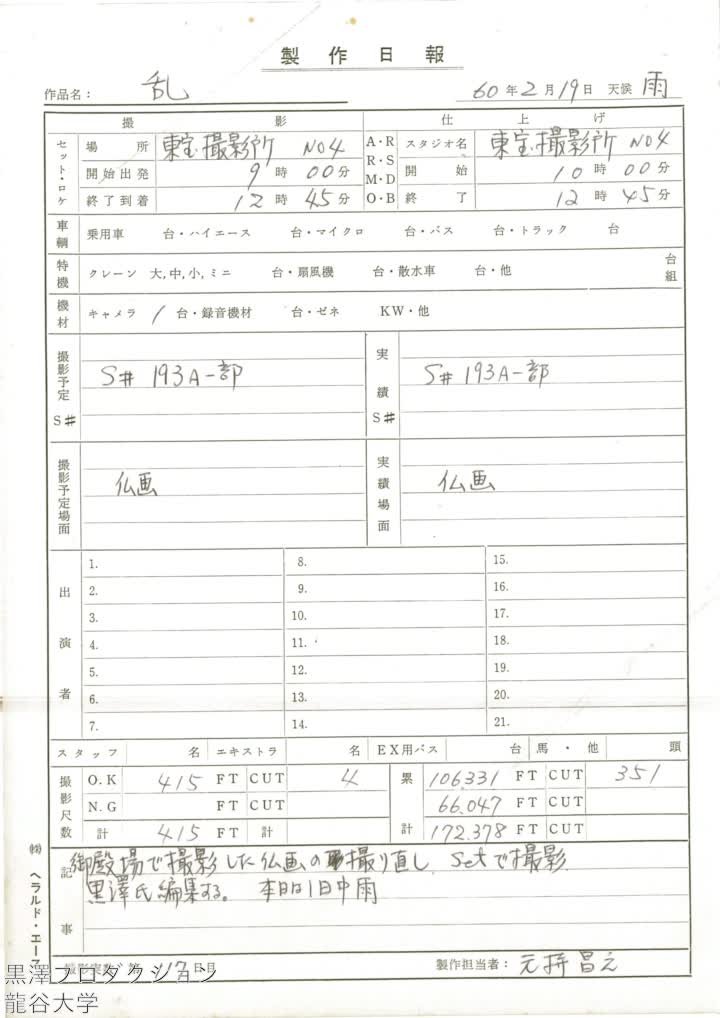 製作日報
作品名： 乱
60年2月19日 天候 雨
撮影 仕上げ
セット・ロケ 場所 東宝撮影所 NO4 A・R スタジオ名 東宝撮影所 NO4
開始出発 9時00分 R・S M・D 開始 10時00分
終了到着 12時45分 O・B 終了 12時45分
車輌 乗用車 台・ハイエース 台・マイクロ 台・バス 台・トラック 台
特機 クレーン 大,中,小,ミニ 台・扇風機 台・散水車 台・他 台組
機材 キャメラ 1台・録音機材 台・ゼネ KW・他
撮影予定 S# S# 193A一部 実績 S# S# 193A一部
撮影予定場面 仏画 実績場面 仏画
出演者
1. 8. 15.
2. 9. 16.
3. 10. 17.
4. 11. 18.
5. 12. 19.
6. 13. 20.
7. 14. 21.
スタッフ 名 エキストラ 名 EX用バス 台 馬・他 頭
撮影尺数 O.K 415 FT CUT 4 累計 106.331 FT CUT 351
N.G FT CUT 66.047 FT CUT
計 415 FT 計 172.378 FT CUT
記事 御殿場で撮影した仏画の撮り直し Setで撮影
黒澤氏編集する。 本日は1日中雨
撮影実数 第 日目 製作担当者：
㈱ ヘラルド・エース
黒澤プロダクション
龍谷大学